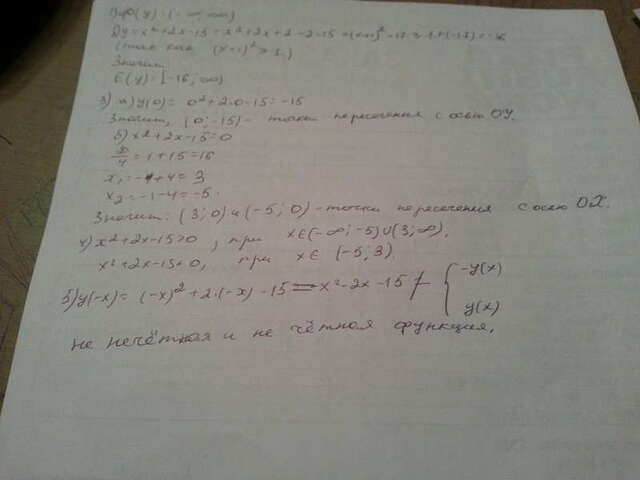 D(y) = (-∞; ∞)
2) y = x²+2x-15 = x²+2x+
(так как (x+1)² ≥
Значит
E(y) = [-16; ∞)
3) а) y(0) = 0²+2·0-15 = -15
Значит, (0; -15) - точка пересечения с осью OY.
б) x²+2x-15=0
D/4 = 1+15=16
x₁ = -1+4 = 3
x₂ = -1-4 = -5.
Значит: (3; 0) и (-5; 0) - точки пересечения с осью OX.
4) x²+2x-15>0, при x∈(-∞; -5)∪(3; ∞).
x²+2x-15<0, при x∈ (-5; 3)
5) y(-x) = (-x)²+2·(-x)-15 = x²-2x-15 ≠ { -y(x)
y(x)
не нечётная и не чётная функция.